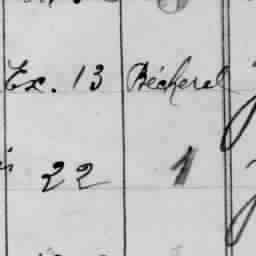 Ex. 13 Bécherel
22 1